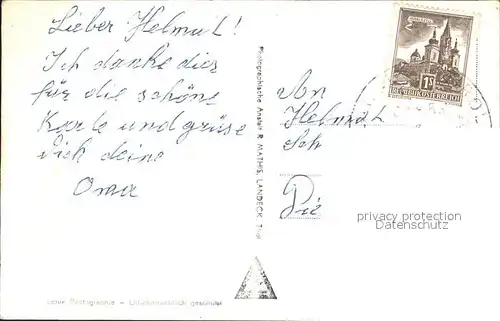 Lieber Helmut!
Ich danke dir
für die schöne
Karte und grüse
Dich deine
Oma
Photographische Anstalt R. MATHIS, LANDECK, Tirol
1S
REPUBLIK ÖSTERREICH
An
Helmut
Sch
Pie
privacy protection
Datenschutz
Photographie – Urheberrechtlich geschützt